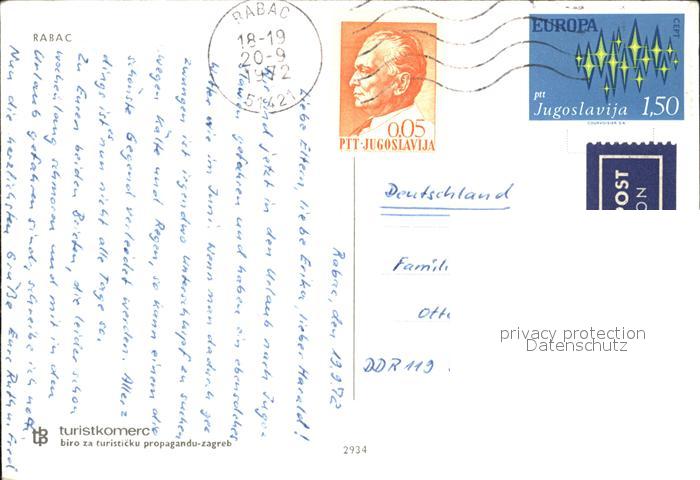 RABAC
RABAC
18-19
20-9
1972
51421
EUROPA
CEPT
ptt
Jugoslavija 1,50
COURVOISIER S.A.
0.05
PTT-JUGOSLAVIJA
POST
ON
Deutschland
Famili
Ott
DDR 119
privacy protection
Datenschutz
Rabac, den 19.9.72
Liebe Eltern, liebe Erika, lieber Harald!
sind jetzt in den Urlaub nach Jugo-
gefahren und haben ein ebensolches
Wetter wie im Juni. Wenn man dadurch ge-
zwungen ist irgendwo Unterschlupf zu suchen
wegen Kälte und Regen, so kann einem die
schönste Gegend verleidet werden. Aller-
dings ist nun nicht alle Tage so.
Zu Euren beiden Briefen, die leider schon
wochenlang schmoren und mit in den
Urlaub gefahren sind, schreibe ich noch.
Nun die herzlichsten Grüße Eure Ruth u. Fred
turistkomerc
biro za turističku propagandu-zagreb
2934